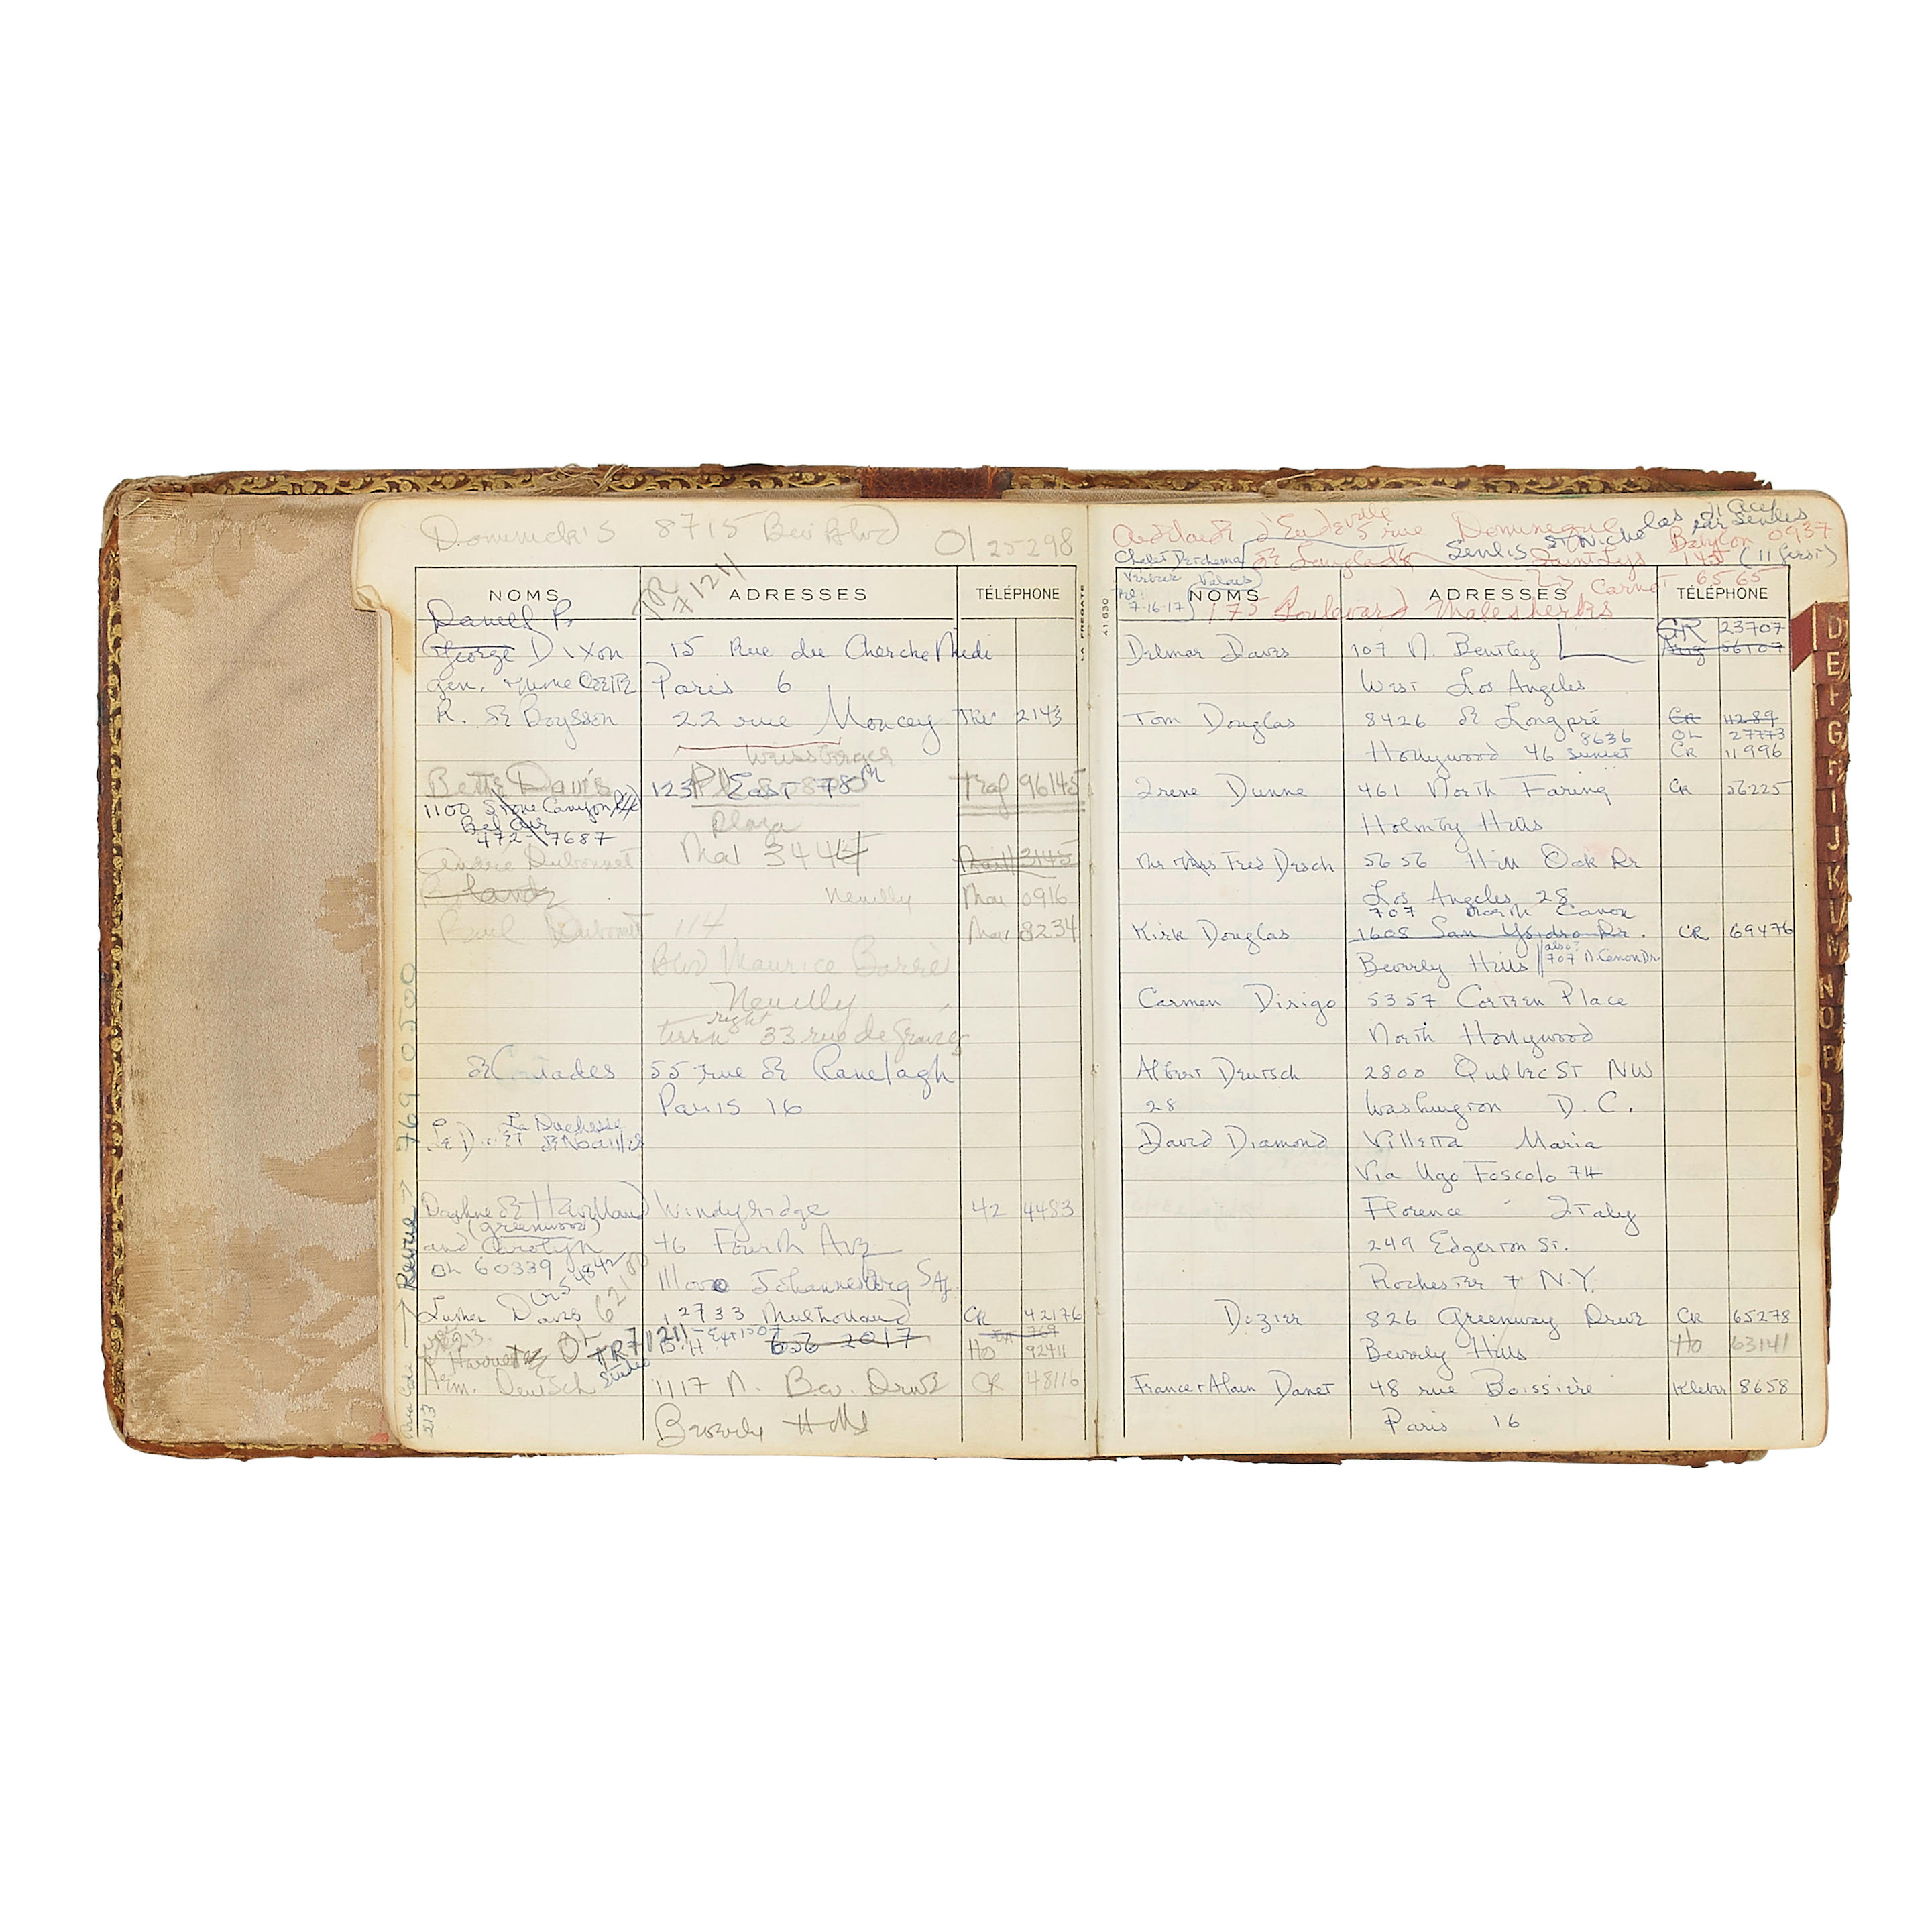 Dominick's 8715 Bev Blvd Ol 25298
TR 71211
NOMS ADRESSES TÉLÉPHONE
George Dixon 15 Rue du Cherche Midi
Gen. Paris 6
R. de Boysson 22 rue Moncey Tri 2143
Weissberger
Bette Davis 123 East 78th Traf 96145
1100 Stone Canyon Rd
Bel Air Plaza
472-7687
André Dubonnet Mai 3444 Mai 3145
Neuilly Mai 0916
Paul Dubonnet 114 Mai 8234
Blvd Maurice Barrès
Neuilly
right
turn 33 rue de
de Contades 55 rue de Ranelagh
Paris 16
La Duchesse
de Noailles
Daphne de Havilland Windyridge 42 4483
(Greenwood)
and Carolyn 46 Fourth Ave
OL 60339 Johannesburg S Af.
Luther Davis 12733 Mulholland CR 42176
TR 71211 Ext 1507 656 2017 769
B.H. Ho 92411
Studio
Arm. Deutsch 1117 N. Bev. Drive CR 48116
Beverly Hills
Revue 769 0500
Area Code 213
LA FREGATE
41.630
5 rue Dominique St Nicholas d'Acy
Senlis par Senlis
Babylon 0937
de Langlade Saint Lys 145 (11 Gersi)
Carnot 6565
Tel: 7-16-17
175 Boulevard Malesherbes
NOMS ADRESSES TÉLÉPHONE
Delmer Daves 107 N. Bentley GR 23707
Ariz 56107
West Los Angeles
Tom Douglas 8426 de Longpré CR 11289
8636 OL 27773
Hollywood 46 Sunset CR 11996
Irene Dunne 461 North Faring CR 26225
Holmby Hills
Mr Mrs Fred Dersch 5656 Hill Oak Dr
Los Angeles 28
707 North Canon
Kirk Douglas 1608 San Ysidro Dr. CR 69476
Beverly Hills also? 707 N. Canon Dr
Carmen Dirigo 5357 Corteen Place
North Hollywood
Albert Deutsch 2800 Quebec St NW
28 Washington D.C.
David Diamond Villetta Maria
Via Ugo Foscolo 74
Florence Italy
249 Edgerton St.
Rochester 7 N.Y.
Dozier 826 Greenway Drive CR 65278
Beverly Hills Ho 63141
France + Alain Danet 48 rue Boissière Kleber 8658
Paris 16
D
E
F
G
H
I
J
K
L
M
N
O
P
Q
R
S